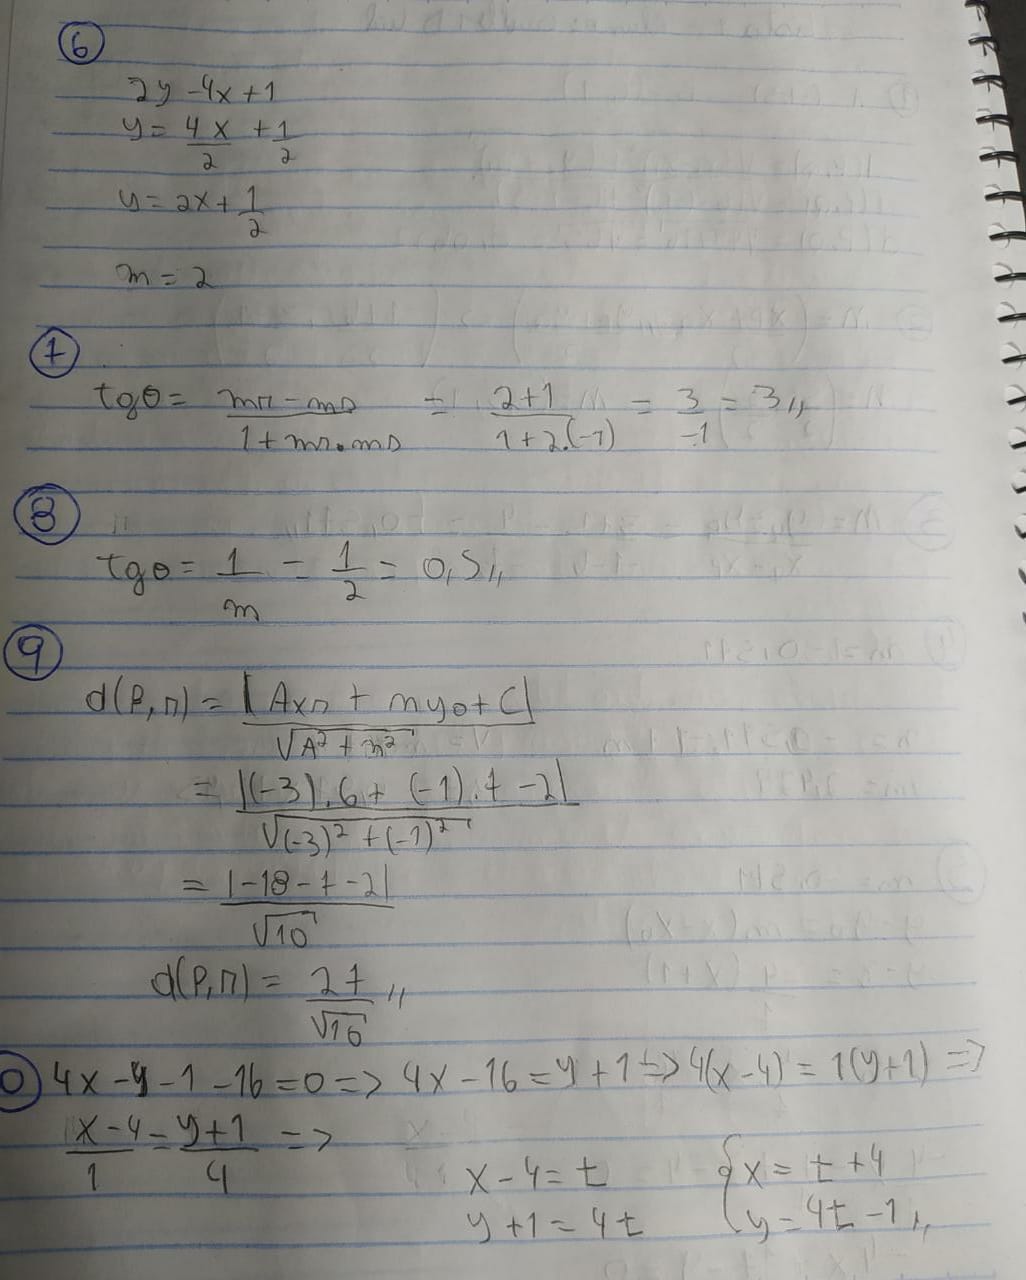 6
2y - 4x + 1
y = 4x/2 + 1/2
y = 2x + 1/2
m = 2
7
tgθ = (mr - ms)/(1 + mr.ms) = (2+1)/(1+2.(-1)) = 3/-1 = 3,,
8
tgθ = 1/m = 1/2 = 0,5,,
9
d(P,r) = |Ax0 + my0 + C|/√(A² + m²)
= |(-3).6 + (-1).7 - 2|/√((-3)² + (-1)²)
= |-18 - 7 - 2|/√10
d(P,r) = 27/√10,,
0) 4x - y - 1 - 16 = 0 => 4x - 16 = y + 1 => 4(x - 4) = 1(y+1) =>
(x - 4)/1 = (y + 1)/4 =>
x - 4 = t { x = t + 4
y + 1 = 4t y = 4t - 1,,